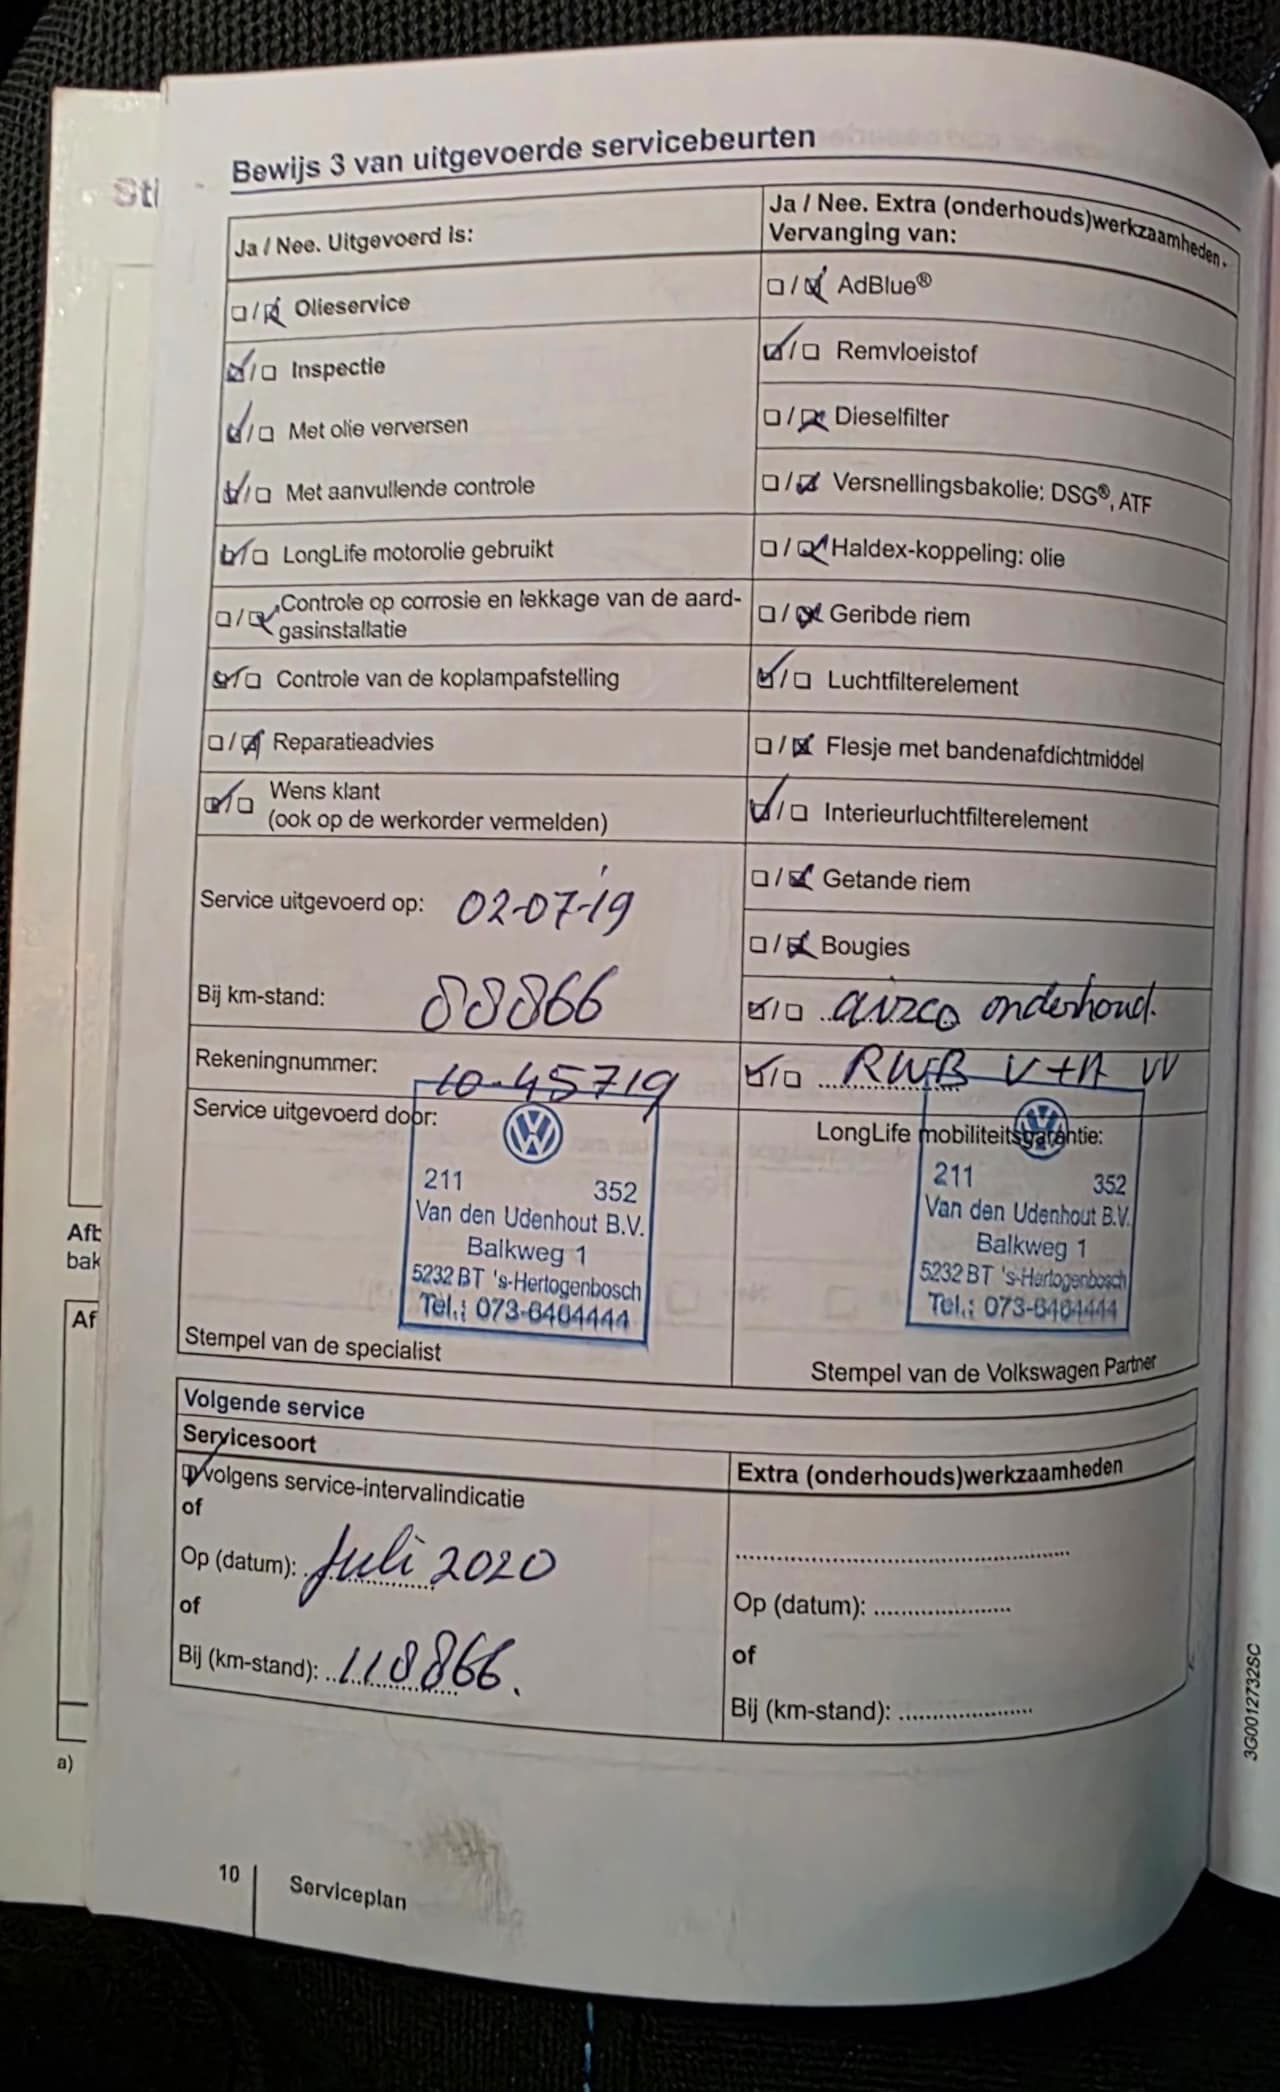 Stl
Bewijs 3 van uitgevoerde servicebeurten
Ja / Nee. Uitgevoerd is:
☐/☑ Olieservice
☑/☐ Inspectie
☑/☐ Met olie verversen
☑/☐ Met aanvullende controle
☑/☐ LongLife motorolie gebruikt
☐/☑ Controle op corrosie en lekkage van de aard-
gasinstallatie
☑/☐ Controle van de koplampafstelling
☐/☑ Reparatieadvies
☑/☐ Wens klant
(ook op de werkorder vermelden)
Service uitgevoerd op: 02-07-19
Bij km-stand: 88866
Rekeningnummer: 10-45719
Ja / Nee. Extra (onderhouds)werkzaamheden.
Vervanging van:
☐/☑ AdBlue®
☑/☐ Remvloeistof
☐/☑ Dieselfilter
☐/☑ Versnellingsbakolie: DSG®, ATF
☐/☑ Haldex-koppeling: olie
☐/☑ Geribde riem
☑/☐ Luchtfilterelement
☐/☑ Flesje met bandenafdichtmiddel
☑/☐ Interieurluchtfilterelement
☐/☑ Getande riem
☐/☑ Bougies
☑/☐ airco onderhoud.
☑/☐ RWB V+A VV
Service uitgevoerd door:
211 352
Van den Udenhout B.V.
Balkweg 1
5232 BT 's-Hertogenbosch
Tel.: 073-6464444
Stempel van de specialist
LongLife mobiliteitsgarantie:
211 352
Van den Udenhout B.V.
Balkweg 1
5232 BT 's-Hertogenbosch
Tel.: 073-6464444
Stempel van de Volkswagen Partner
Volgende service
Servicesoort
☑ volgens service-intervalindicatie
of
Op (datum): Juli 2020
of
Bij (km-stand): 118866.
Extra (onderhouds)werkzaamheden
Op (datum):
of
Bij (km-stand):
10
Serviceplan
Aft
bak
Af
a)
3G0012732SC